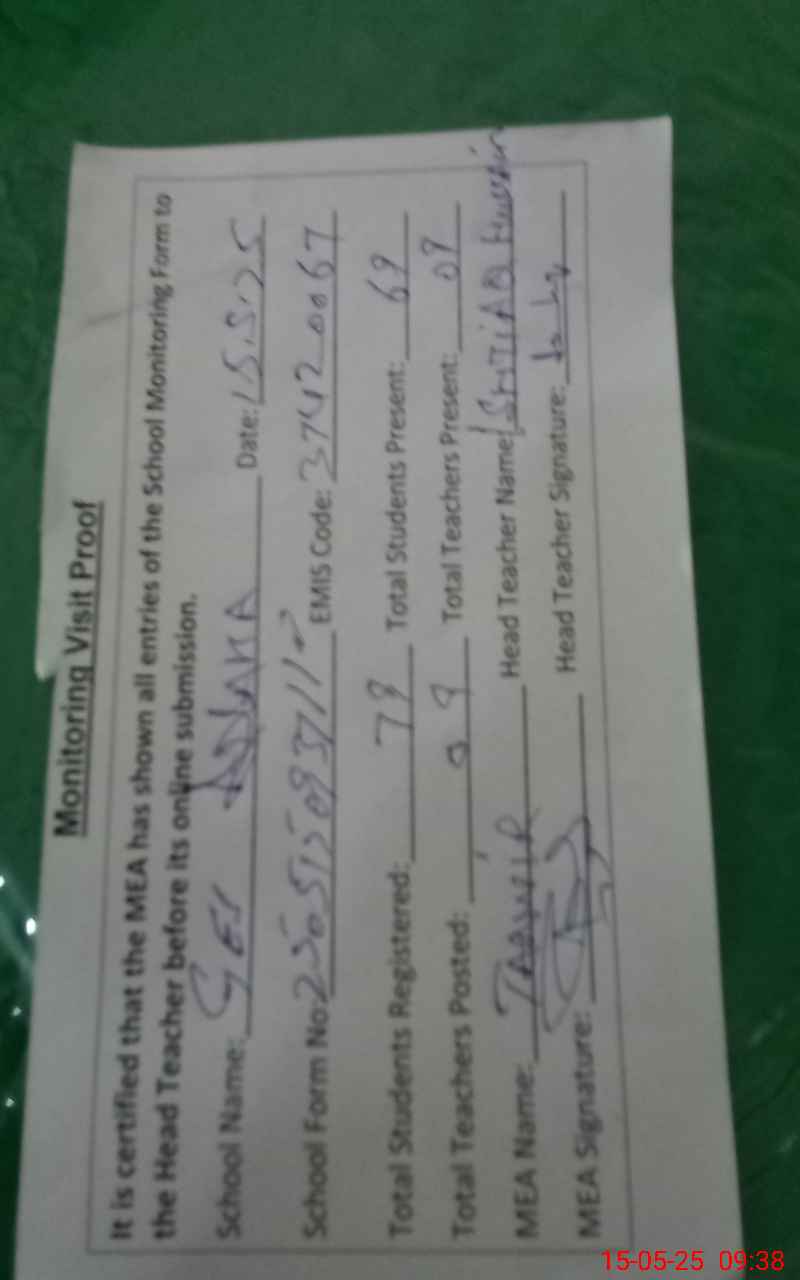 Monitoring Visit Proof
It is certified that the MEA has shown all entries of the School Monitoring Form to
the Head Teacher before its online submission.
School Name: GES Date: 15.5.25
School Form No: EMIS Code: 37420067
Total Students Registered: 79 Total Students Present: 69
Total Teachers Posted: 09 Total Teachers Present: 09
MEA Name: Head Teacher Name: ISHTIAQ Hussain
MEA Signature: Head Teacher Signature:
15-05-25 09:38